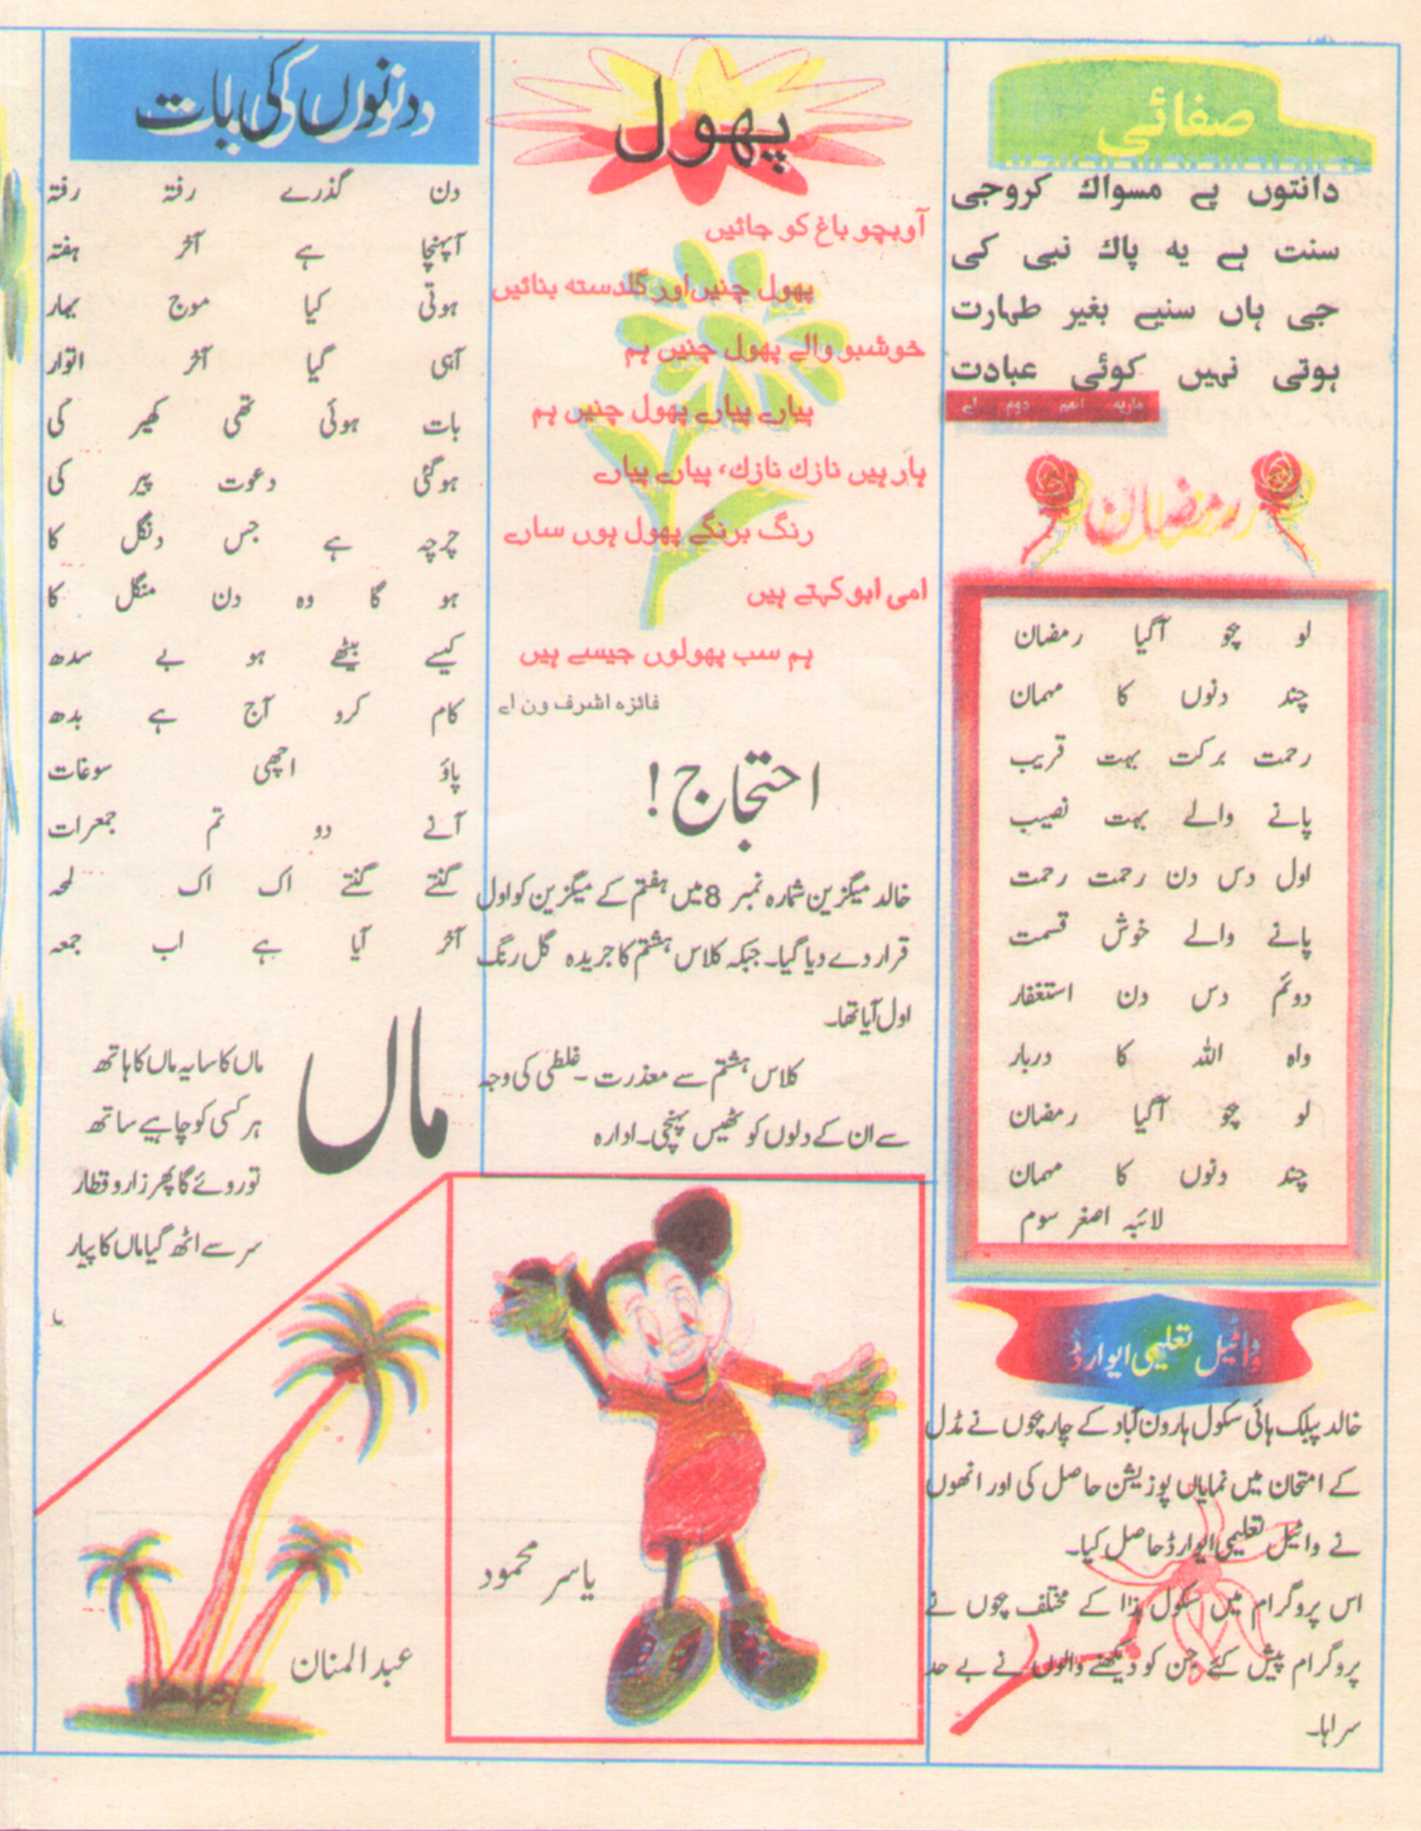 صفائی
دانتوں پے مسواک کروجی
سنت ہے یہ پاک نبی کی
جی ہاں سنیے بغیر طہارت
ہوتی نہیں کوئی عبادت
ماریہ انعم دوم اے
رمضان
لو بچو آگیا رمضان
چند دنوں کا مہمان
رحمت برکت بہت قریب
پانے والے بہت نصیب
اول دس دن رحمت رحمت
پانے والے خوش قسمت
دوئم دس دن استغفار
واہ اللہ کا دربار
لو بچو آگیا رمضان
چند دنوں کا مہمان
لائبہ اصغر سوم
وائیل تعلیمی ایوارڈ
خالد پبلک ہائی سکول ہارون آباد کے چار بچوں نے مڈل
کے امتحان میں نمایاں پوزیشن حاصل کی اور انھوں
نے وائیل تعلیمی ایوارڈ حاصل کیا۔
اس پروگرام میں سکول ہذا کے مختلف بچوں نے
پروگرام پیش کئے جن کو دیکھنے والوں نے بے حد
سراہا۔
پھول
آوبچو باغ کو جائیں
پھول چنیں اور گلدستہ بنائیں
خوشبو والے پھول چنیں ہم
پیارے پیارے پھول چنیں ہم
ہار ہیں نازک نازک، پیارے پیارے
رنگ برنگے پھول ہوں سارے
امی ابو کہتے ہیں
ہم سب پھولوں جیسے ہیں
فائزہ اشرف ون اے
احتجاج!
خالد میگزین شمارہ نمبر 8 میں ہفتم کے میگزین کو اول
قرار دے دیا گیا۔ جبکہ کلاس ہشتم کا جریدہ گل رنگ
اول آیا تھا۔
کلاس ہشتم سے معذرت - غلطی کی وجہ
سے ان کے دلوں کو ٹھیس پہنچی۔ ادارہ
یاسر محمود
دنوں کی بات
دن گذرے رفتہ رفتہ
آپہنچا ہے آخر ہفتہ
ہوتی کیا موج بہار
آہی گیا آخر اتوار
بات ہوئی تھی کھیر کی
ہوگئی دعوت پیر کی
چرچہ ہے جس دنگل کا
ہو گا وہ دن منگل کا
کیسے بیٹھے ہو بے سدھ
کام کرو آج ہے بدھ
پاؤ اچھی سوغات
آنے دو تم جمعرات
گنتے گنتے اک اک لمحہ
آخر آیا ہے اب جمعہ
ماں
ماں کا سایہ ماں کا ہاتھ
ہر کسی کو چاہیے ساتھ
تو روئے گا پھر زاروقطار
سر سے اٹھ گیا ماں کا پیار
عبدالمنان